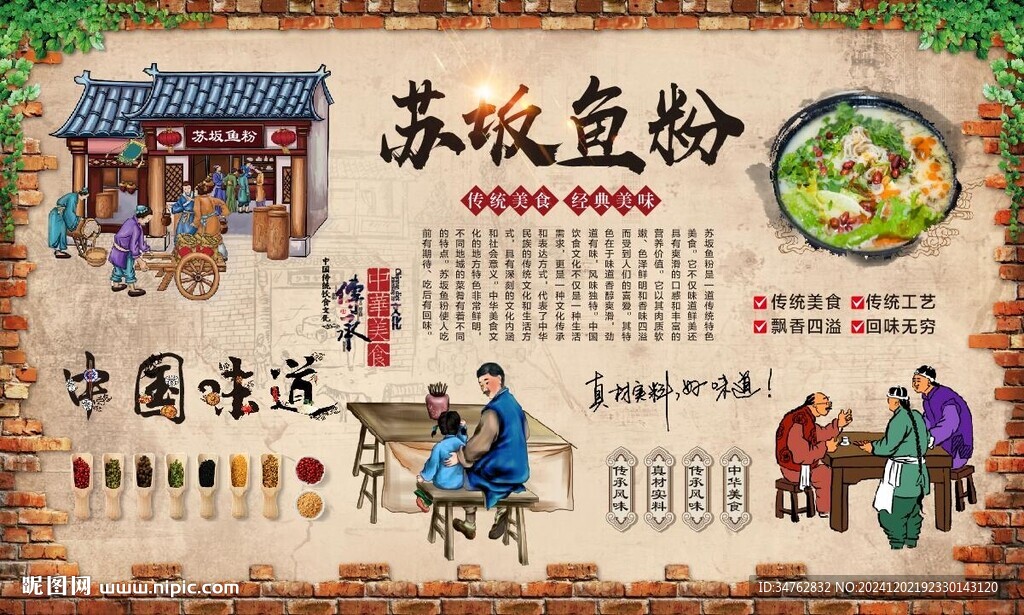 苏坂鱼粉
苏坂鱼粉
传统美食 经典美味
苏坂鱼粉是一道传统特色
美食。它不仅味道鲜美还
具有爽滑的口感和丰富的
营养价值。它以其肉质软
嫩、色泽鲜明和香味四溢
而受到人们的喜爱。其特
色在于味道香醇爽滑，劲
道有味，风味独特。中国
饮食文化不仅是一种生活
需求，更是一种文化传承
和表达方式，代表了中华
民族的传统文化和生活方
式，具有深刻的文化内涵
和社会意义。中华美食文
化的地方特色非常鲜明，
不同地域的菜肴有着不同
的特点。苏坂鱼粉使人吃
前有期待、吃后有回味。
中国传统饮食文化
传承
中华美食
文化
传统美食
传统工艺
飘香四溢
回味无穷
中国味道
真材实料,好味道!
传承风味
真材实料
传承风味
中华美食
昵图网 www.nipic.com
ID:34762832 NO:20241202192330143120